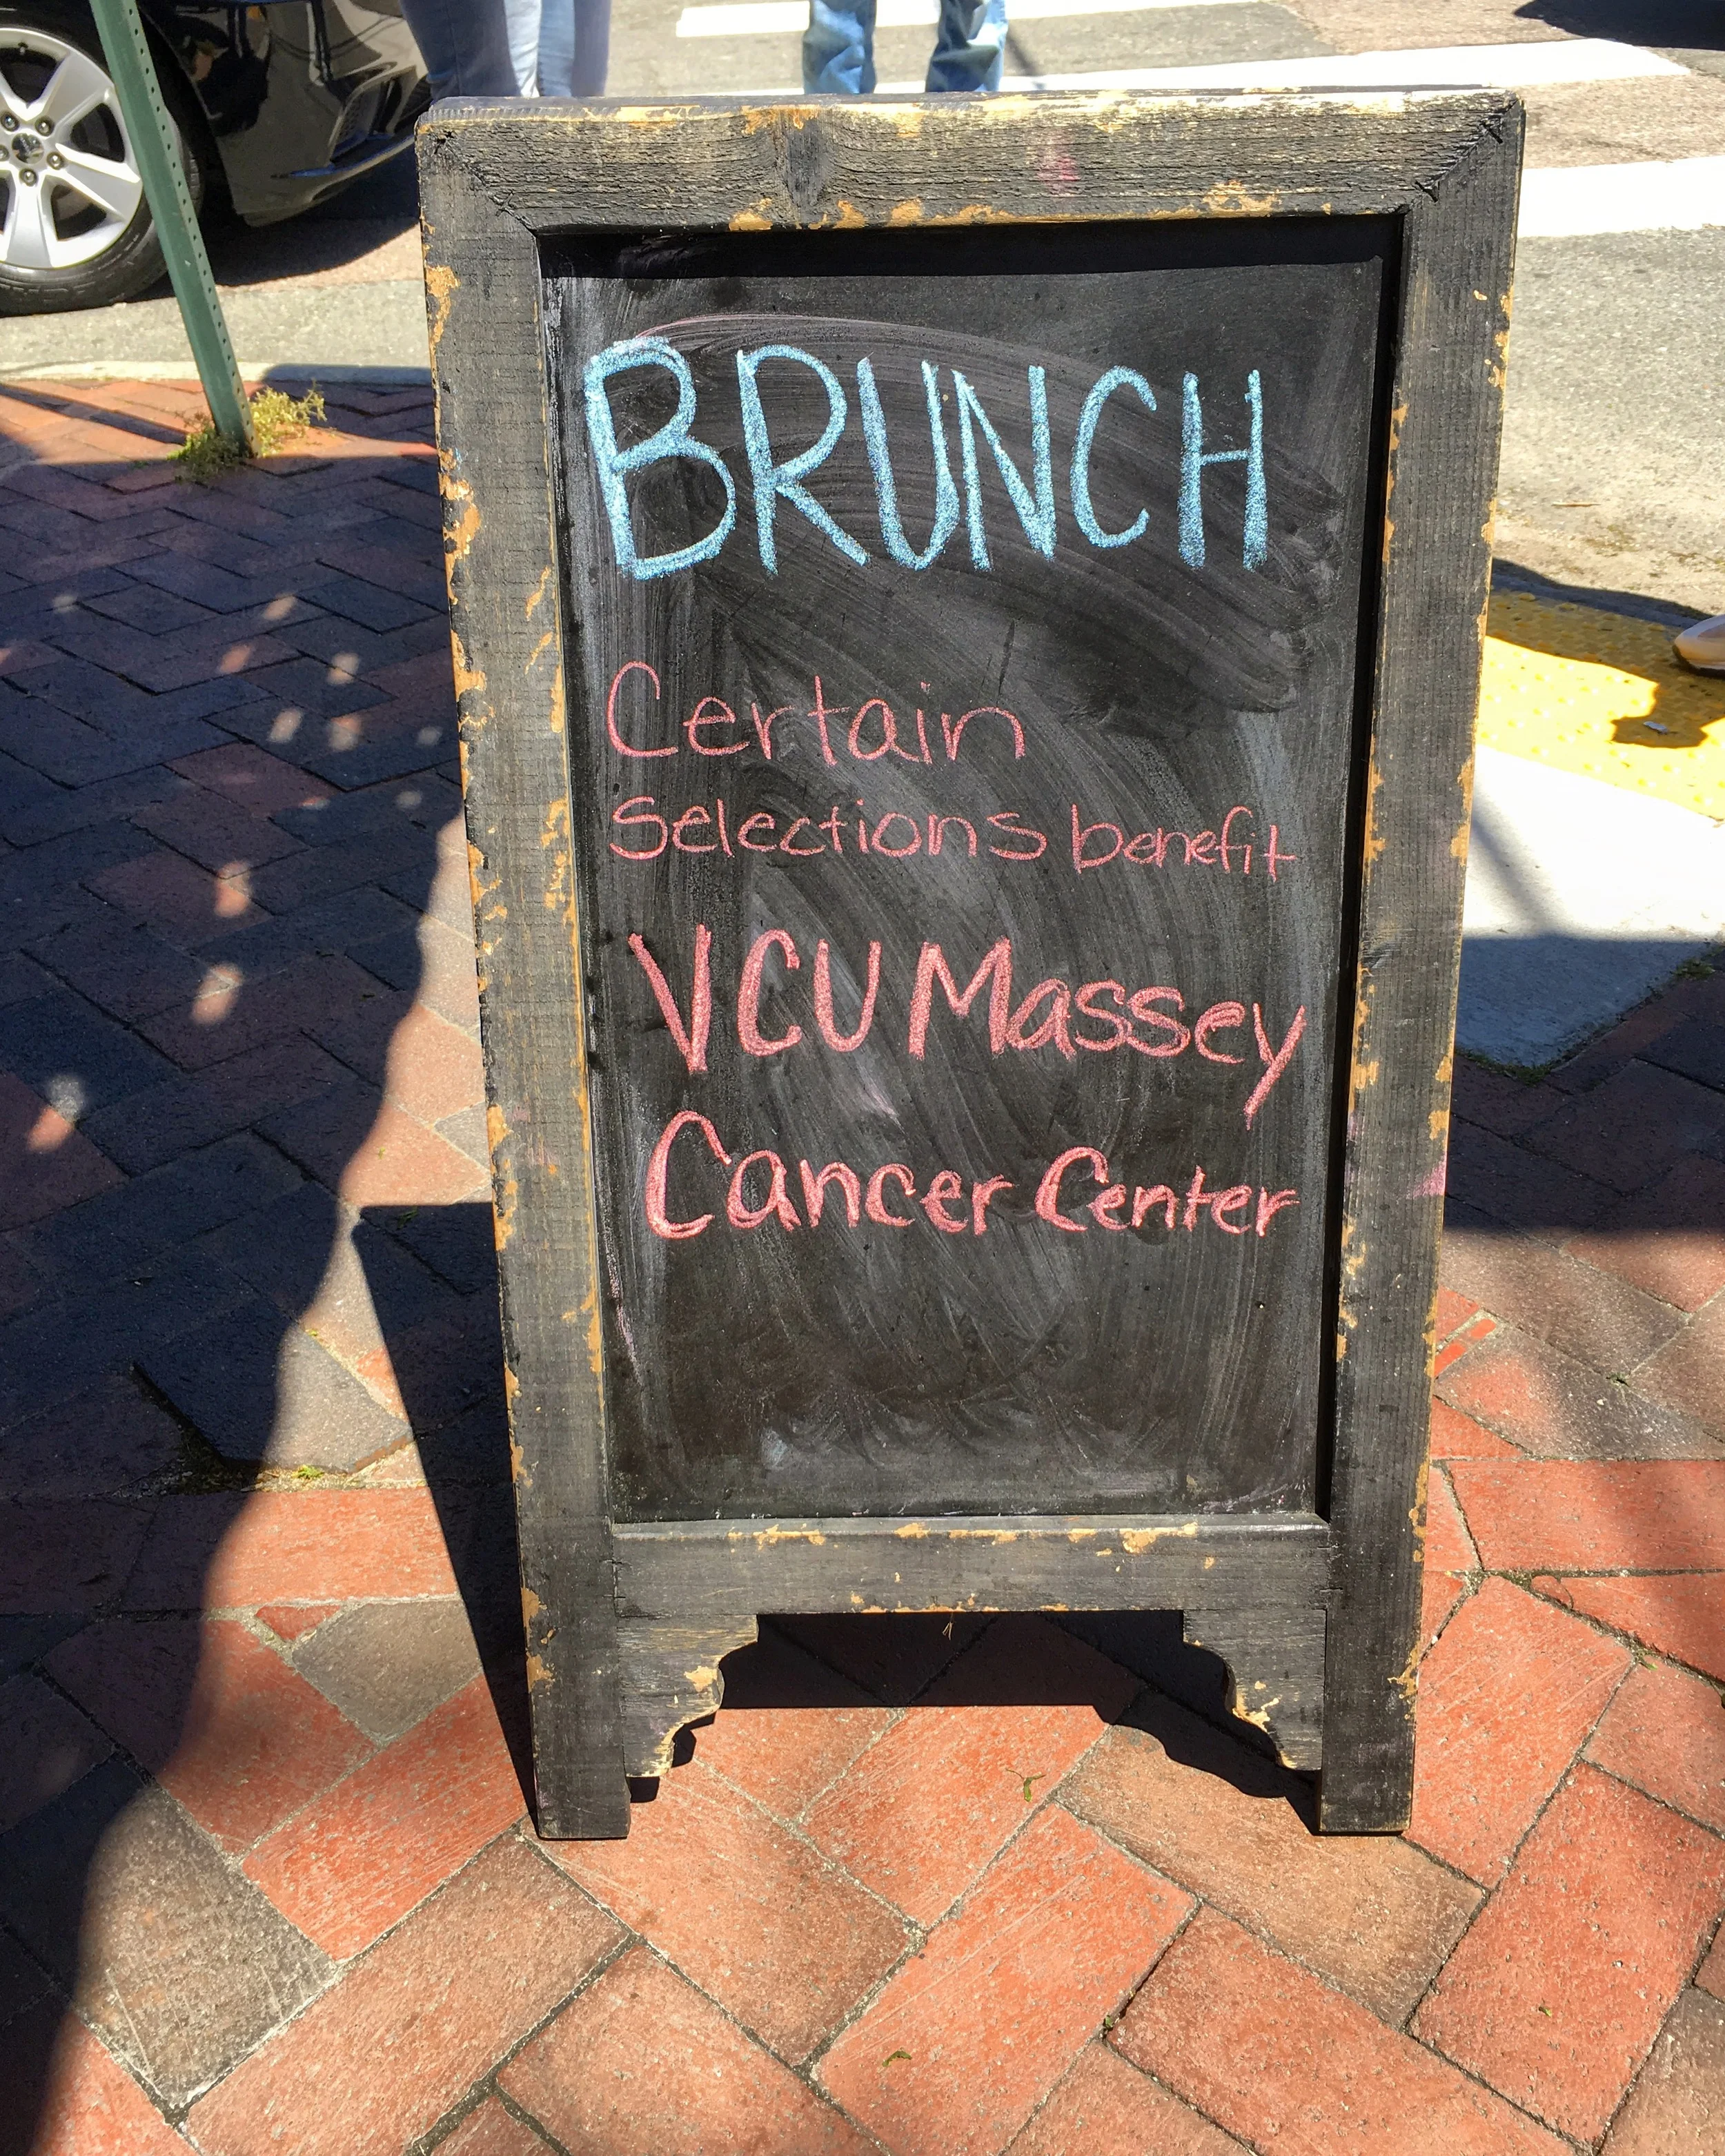 BRUNCH
Certain
selections benefit
VCU Massey
Cancer Center